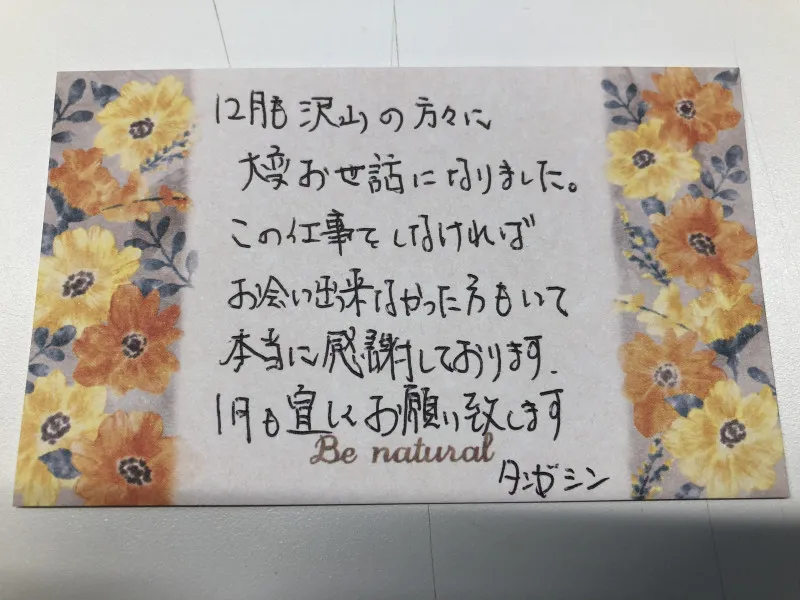 12月も沢山の方々に
大変お世話になりました。
この仕事をしなければ
お会い出来なかった方もいて
本当に感謝しております.
1月も宜しくお願い致します
Be natural
タンガシン